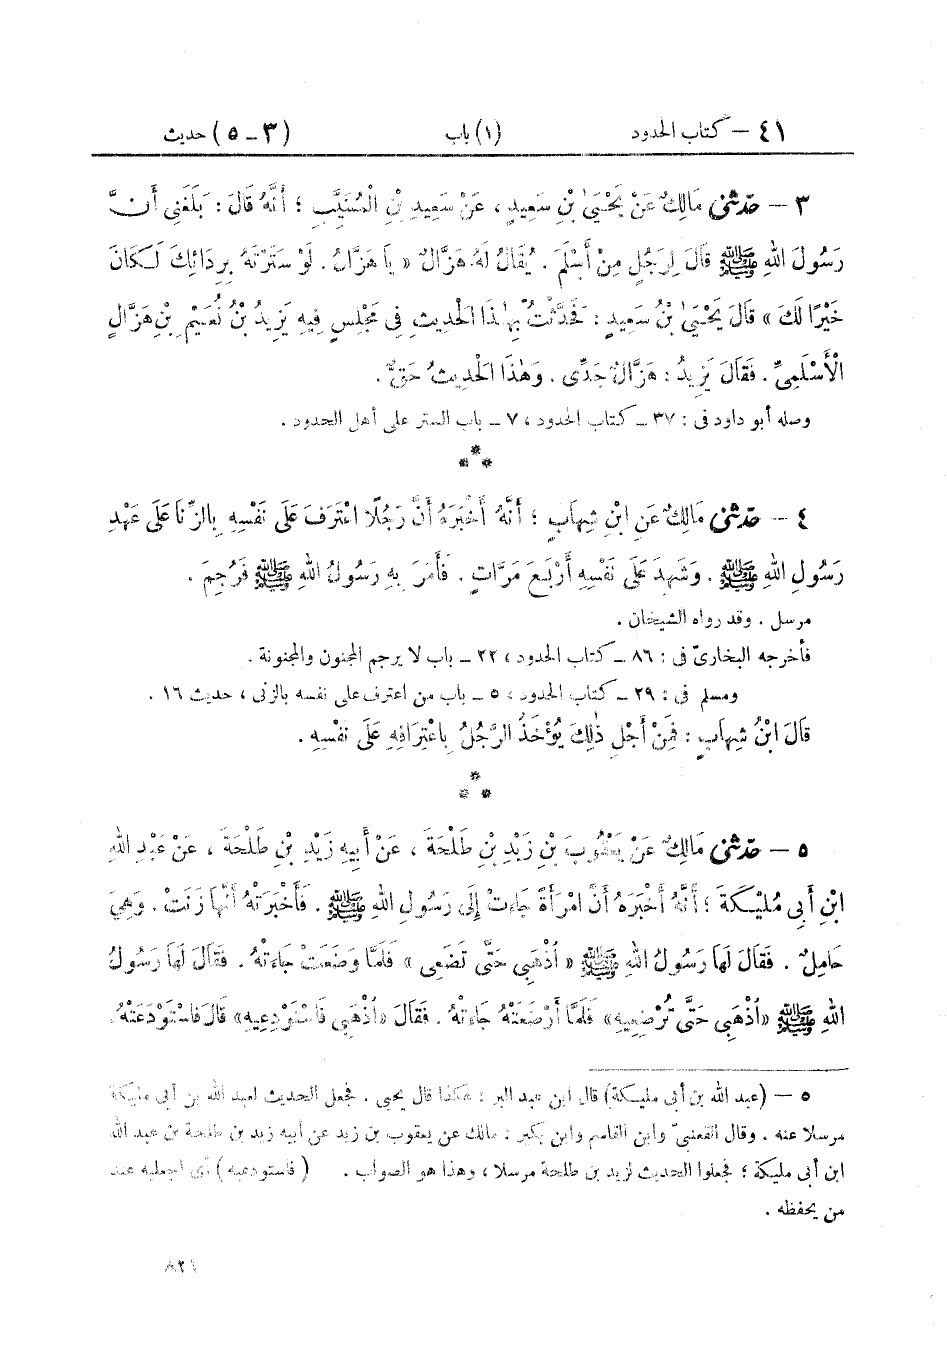 ٤١ – كتاب الحدود (١) باب (٣ – ٥) حديث
٣ – حَدَّثَنِي مَالِكٌ عَنْ يَحْيَىٰ بْنِ سَعِيدٍ ، عَنْ سَعِيدِ بْنِ الْمُسَيَّبِ ؛ أَنَّهُ قَالَ : بَلَغَنِي أَنَّ
رَسُولَ اللهِ ﷺ قَالَ لِرَجُلٍ مِنْ أَسْلَمَ . يُقَالُ لَهُ هَزَّالٌ « يَا هَزَّالُ . لَوْ سَتَرْتَهُ بِرِدَائِكَ لَكَانَ
خَيْرًا لَكَ » قَالَ يَحْيَىٰ بْنُ سَعِيدٍ : فَحَدَّثْتُ بِهٰذَا الْحَدِيثِ فِي مَجْلِسٍ فِيهِ يَزِيدُ بْنُ نُعَيْمِ بْنِ هَزَّالٍ
الْأَسْلَمِيِّ . فَقَالَ يَزِيدُ : هَزَّالٌ جَدِّي . وَهٰذَا الْحَدِيثُ حَقٌّ .
وصله أبو داود فى : ٣٧ – كتاب الحدود ، ٧ – باب الستر على أهل الحدود .
***
٤ – حَدَّثَنِي مَالِكٌ عَنِ ابْنِ شِهَابٍ ؛ أَنَّهُ أَخْبَرَهُ أَنَّ رَجُلًا اعْتَرَفَ عَلَى نَفْسِهِ بِالزِّنَا عَلَى عَهْدِ
رَسُولِ اللهِ ﷺ . وَشَهِدَ عَلَى نَفْسِهِ أَرْبَعَ مَرَّاتٍ . فَأَمَرَ بِهِ رَسُولُ اللهِ ﷺ فَرُجِمَ .
مرسل . وقد رواه الشيخان .
فأخرجه البخارىّ فى : ٨٦ – كتاب الحدود ، ٢٢ – باب لا يرجم المجنون والمجنونة .
ومسلم فى : ٢٩ – كتاب الحدود ، ٥ – باب من اعترف على نفسه بالزنى ، حديث ١٦ .
قَالَ ابْنُ شِهَابٍ : فَمِنْ أَجْلِ ذٰلِكَ يُؤْخَذُ الرَّجُلُ بِاعْتِرَافِهِ عَلَى نَفْسِهِ .
***
٥ – حَدَّثَنِي مَالِكٌ عَنْ يَعْقُوبَ بْنِ زَيْدِ بْنِ طَلْحَةَ ، عَنْ أَبِيهِ زَيْدِ بْنِ طَلْحَةَ ، عَنْ عَبْدِ اللهِ
ابْنِ أَبِي مُلَيْكَةَ ؛ أَنَّهُ أَخْبَرَهُ أَنَّ امْرَأَةً جَاءَتْ إِلَى رَسُولِ اللهِ ﷺ . فَأَخْبَرَتْهُ أَنَّهَا زَنَتْ . وَهِيَ
حَامِلٌ . فَقَالَ لَهَا رَسُولُ اللهِ ﷺ « اذْهَبِي حَتَّى تَضَعِي » فَلَمَّا وَضَعَتْ جَاءَتْهُ . فَقَالَ لَهَا رَسُولُ
اللهِ ﷺ « اذْهَبِي حَتَّى تُرْضِعِيهِ » فَلَمَّا أَرْضَعَتْهُ جَاءَتْهُ . فَقَالَ « اذْهَبِي فَاسْتَوْدِعِيهِ » قَالَ فَاسْتَوْدَعَتْهُ .
٥ – (عبد الله بن أبى مليكة) قال ابن عبد البر : هكذا قال يحيى . فجعل الحديث لعبد الله بن أبى مليكة
مرسلا عنه . وقال القعنبىّ وابن القاسم وابن بكير : مالك عن يعقوب بن زيد عن أبيه زيد بن طلحة بن عبد الله
ابن أبى مليكة ؛ فجعلوا الحديث لزيد بن طلحة مرسلا ، وهذا هو الصواب . (فاستودعيه) أى اجعليه عند
من يحفظه .
٨٢١